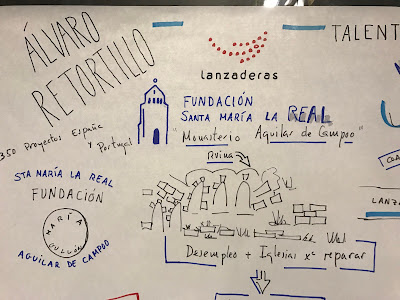 ÁLVARO
RETORTILLO
350 Proyectos España
y Portugal
STA MARÍA LA REAL
FUNDACIÓN
MARÍA
AGUILAR DE CAMPOO
lanzaderas
FUNDACIÓN
SANTA MARÍA LA REAL
"Monasterio Aguilar de Campoo"
Ruina
Desempleo + Iglesias xª reparar
TALENT
COA
LANZA